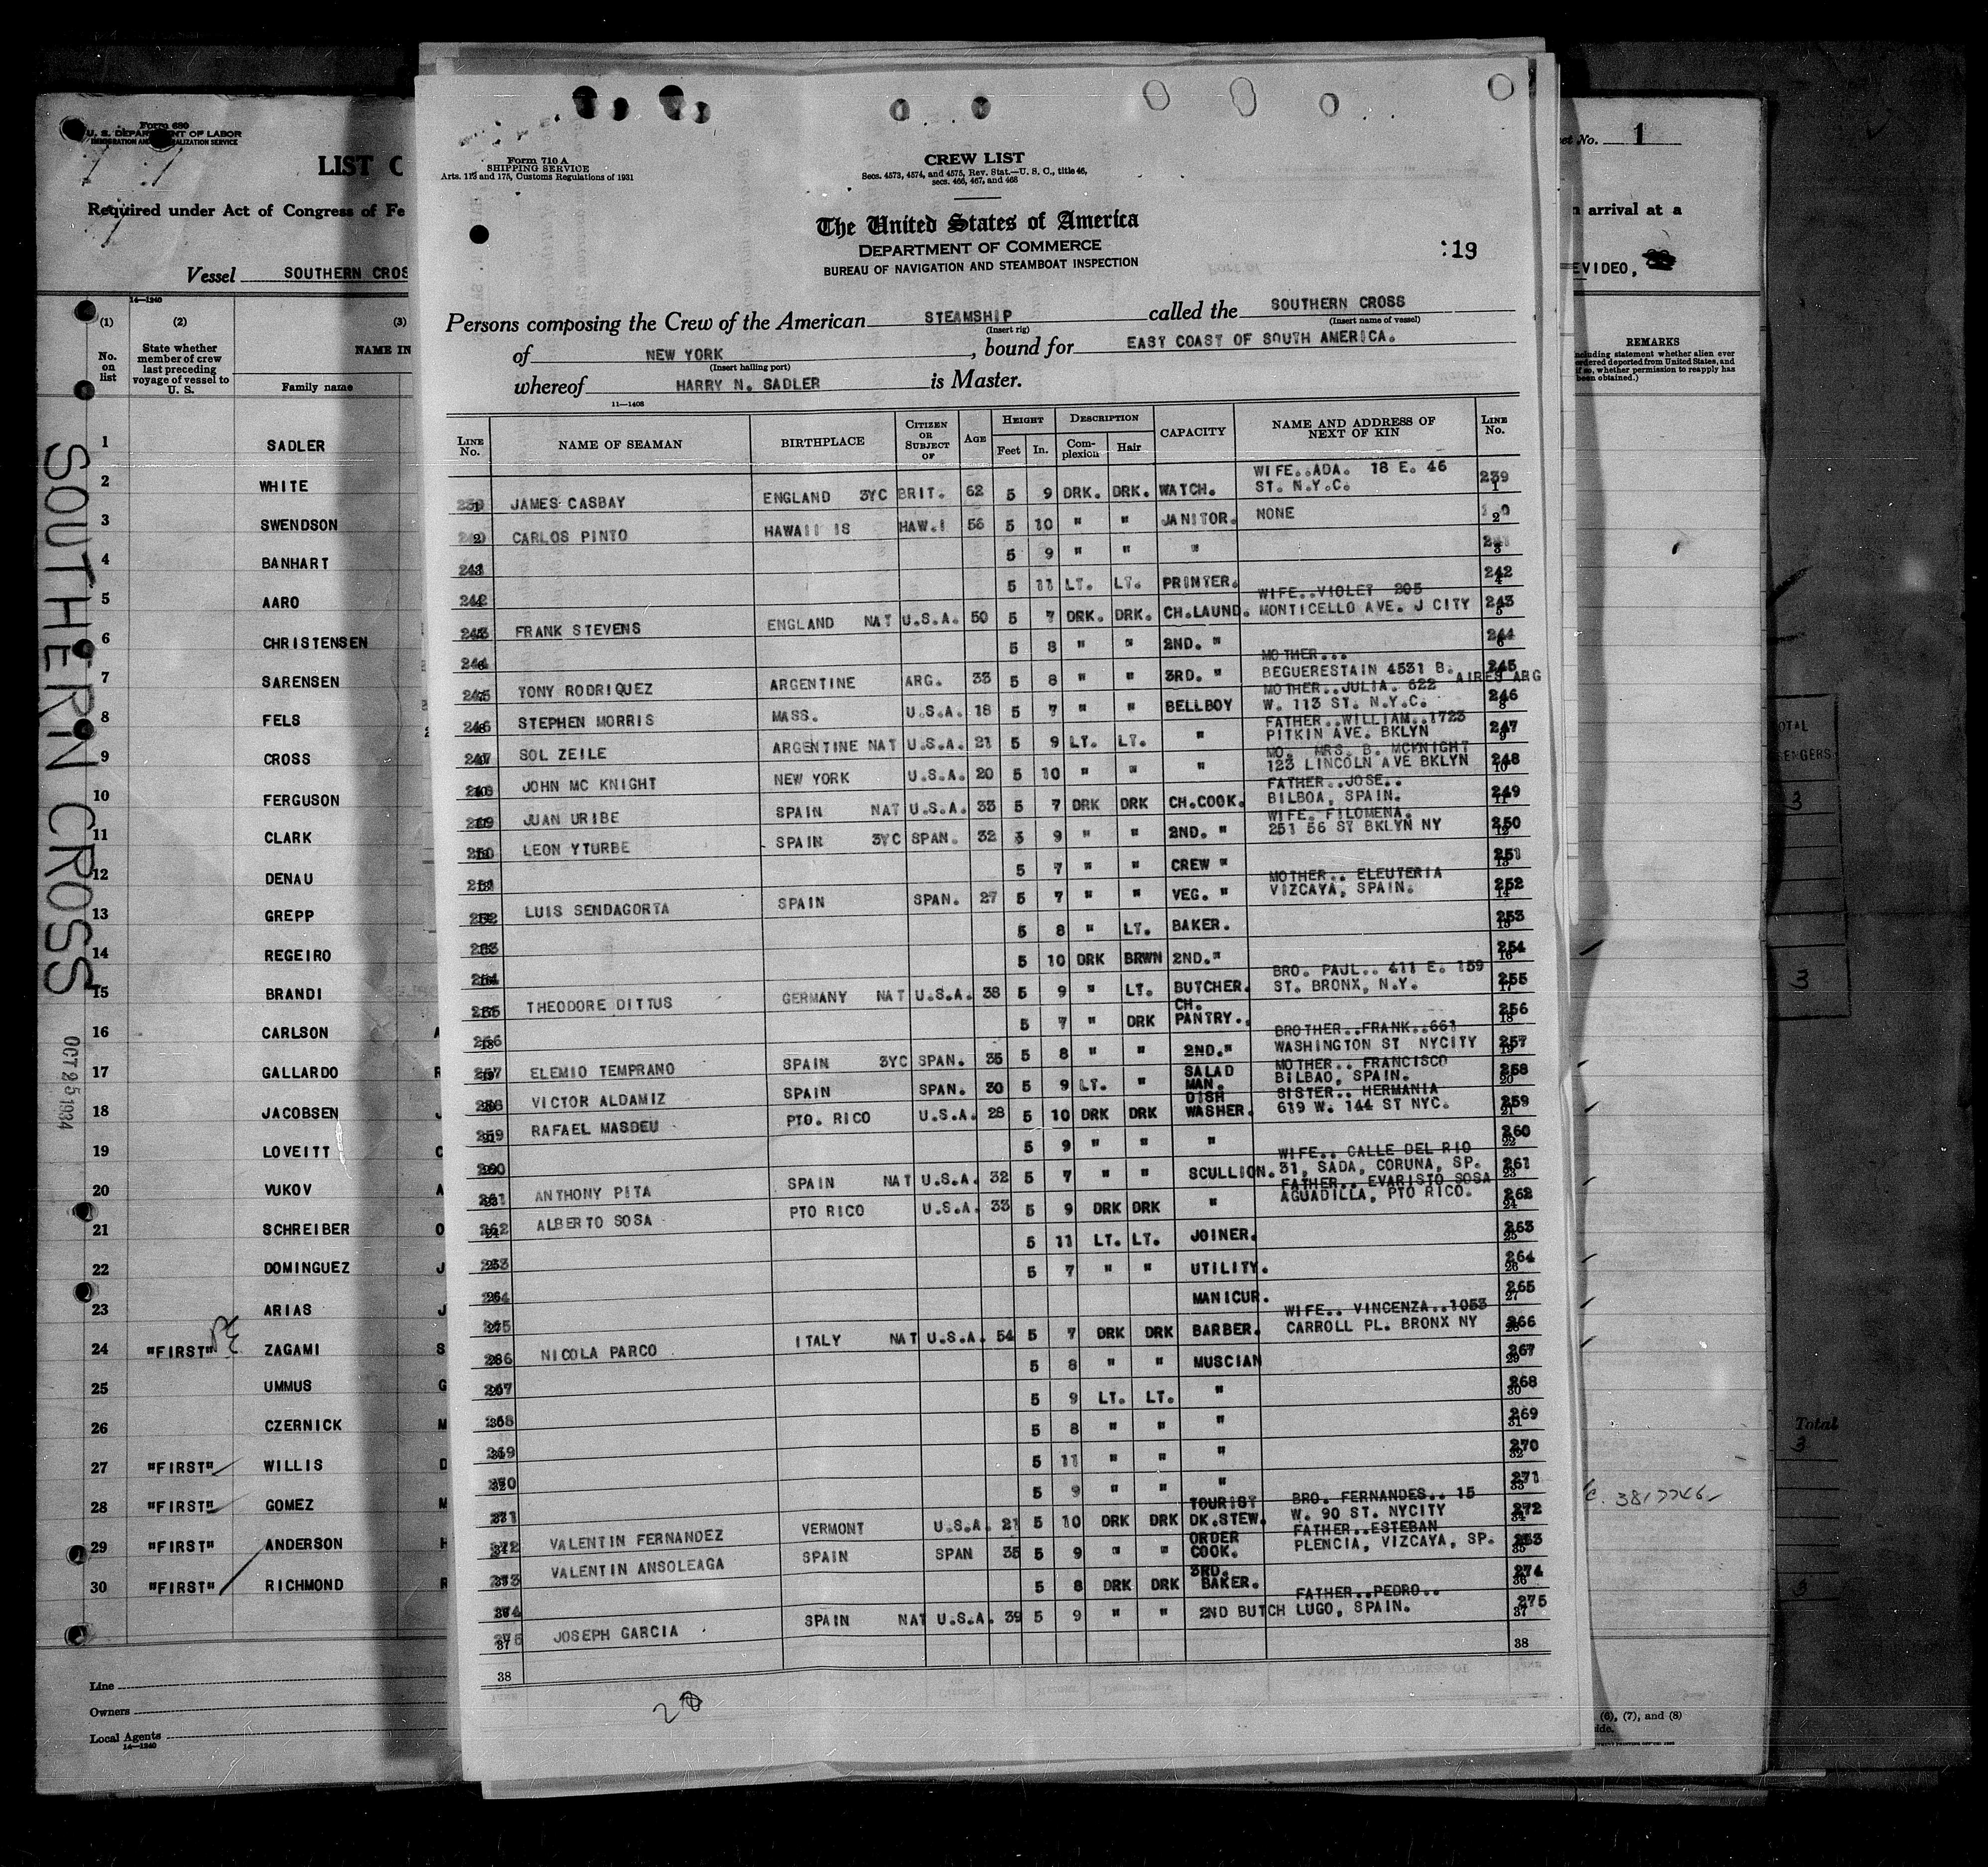 Form 680
U. S. DEPARTMENT OF LABOR
IMMIGRATION AND NATURALIZATION SERVICE
LIST
Required under Act of Congress of Fe
Vessel SOUTHERN CROS
14—1240
(1) (2) (3)
No. on list
State whether member of crew last preceding voyage of vessel to U. S.
NAME IN
Family name
1 SADLER
2 WHITE
3 SWENDSON
4 BANHART
5 AARO
6 CHRISTENSEN
7 SARENSEN
8 FELS
9 CROSS
10 FERGUSON
11 CLARK
12 DENAU
13 GREPP
14 REGEIRO
15 BRANDI
16 CARLSON
17 GALLARDO
18 JACOBSEN
19 LOVEITT
20 VUKOV
21 SCHREIBER
22 DOMINGUEZ
23 ARIAS
24 "FIRST" ZAGAMI
25 UMMUS
26 CZERNICK
27 "FIRST" WILLIS
28 "FIRST" GOMEZ
29 "FIRST" ANDERSON
30 "FIRST" RICHMOND
Line
Owners
Local Agents
14—1240
SOUTHERN CROSS
OCT 25 1934
Form 710 A
SHIPPING SERVICE
Arts. 113 and 175, Customs Regulations of 1931
CREW LIST
Secs. 4573, 4574, and 4575, Rev. Stat.—U. S. C., title 46,
secs. 466, 467, and 468
The United States of America
DEPARTMENT OF COMMERCE
BUREAU OF NAVIGATION AND STEAMBOAT INSPECTION
:19
Persons composing the Crew of the American STEAMSHIP called the SOUTHERN CROSS
(Insert rig) (Insert name of vessel)
of NEW YORK, bound for EAST COAST OF SOUTH AMERICA.
(Insert hailing port)
whereof HARRY N. SADLER is Master.
11—1408
LINE No. NAME OF SEAMAN BIRTHPLACE CITIZEN OR SUBJECT OF AGE HEIGHT Feet In. DESCRIPTION Complexion Hair CAPACITY NAME AND ADDRESS OF NEXT OF KIN LINE No.
239 1 JAMES CASBAY ENGLAND 3YC BRIT. 62 5 9 DRK. DRK. WATCH. WIFE..ADA. 18 E. 46 ST. N.Y.C. 239 1
2 CARLOS PINTO HAWAII IS HAW.I 56 5 10 " " JANITOR. NONE 2
241 5 9 " " " 241 3
242 5 11 LT. LT. PRINTER. 242 4
243 FRANK STEVENS ENGLAND NAT U.S.A. 50 5 7 DRK. DRK. CH.LAUND. WIFE..VIOLET 205 MONTICELLO AVE. J CITY 243 5
244 5 8 " " 2ND. " 244 6
245 TONY RODRIQUEZ ARGENTINE ARG. 33 5 8 " " 3RD. " MOTHER... BEGUERESTAIN 4531 B. AIRES ARG 245
246 STEPHEN MORRIS MASS. U.S.A. 18 5 7 " " BELLBOY MOTHER..JULIA. 622 W. 113 ST. N.Y.C. 246 8
247 SOL ZEILE ARGENTINE NAT U.S.A. 21 5 9 LT. LT. " FATHER..WILLIAM..1723 PITKIN AVE. BKLYN 247 9
248 JOHN MC KNIGHT NEW YORK U.S.A. 20 5 10 " " " MO. MRS. B. MCKNIGHT 123 LINCOLN AVE BKLYN 248 10
249 JUAN URIBE SPAIN NAT U.S.A. 33 5 7 DRK DRK CH.COOK. FATHER..JOSE.. BILBOA, SPAIN. 249 11
250 LEON YTURBE SPAIN 3YC SPAN. 32 3 9 " " 2ND. " WIFE. FILOMENA. 251 56 ST BKLYN NY 250 12
251 5 7 " " CREW " 251 13
252 LUIS SENDAGORTA SPAIN SPAN. 27 5 7 " " VEG. " MOTHER.. ELEUTERIA VIZCAYA, SPAIN. 252 14
253 5 8 " LT. BAKER. 253 15
254 5 10 DRK BRWN 2ND." 254 16
255 THEODORE DITTUS GERMANY NAT U.S.A. 38 5 9 " LT. BUTCHER. BRO. PAUL.. 411 E. 159 ST. BRONX, N.Y. 255 17
256 5 7 " DRK CH. PANTRY.. 256 18
257 ELEMIO TEMPRANO SPAIN 3YC SPAN. 35 5 8 " " 2ND." BROTHER..FRANK..661 WASHINGTON ST NYCITY 257 19
258 VICTOR ALDAMIZ SPAIN SPAN. 30 5 9 LT. " SALAD MAN. MOTHER.. FRANCISCO BILBAO, SPAIN. 258 20
259 RAFAEL MASDEU PTO. RICO U.S.A. 28 5 10 DRK DRK DISH WASHER. SISTER.. HERMANIA 619 W. 144 ST NYC. 259 21
260 5 9 " " " 260 22
261 ANTHONY PITA SPAIN NAT U.S.A. 32 5 7 " " SCULLION. WIFE.. CALLE DEL RIO 31, SADA, CORUNA, SP. 261 23
262 ALBERTO SOSA PTO RICO U.S.A. 33 5 9 DRK DRK " FATHER.. EVARISTO SOSA AGUADILLA, PTO RICO. 262 24
263 5 11 LT. LT. JOINER. 263 25
264 5 7 " " UTILITY. 264 26
265 MANICUR. 265 27
266 NICOLA PARCO ITALY NAT U.S.A. 54 5 7 DRK DRK BARBER. WIFE.. VINCENZA..1053 CARROLL PL. BRONX NY 266 28
267 5 8 " " MUSCIAN 267 29
268 5 9 LT. LT. " 268 30
269 5 8 " " " 269 31
270 5 11 " " " 270 32
271 5 9 " " " 271 33
272 VALENTIN FERNANDEZ VERMONT U.S.A. 21 5 10 DRK DRK TOURIST DK.STEW. BRO. FERNANDES.. 15 W. 90 ST. NYCITY 272 34
273 VALENTIN ANSOLEAGA SPAIN SPAN 35 5 9 " " ORDER COOK. FATHER..ESTEBAN PLENCIA, VIZCAYA, SP. 35
274 5 8 DRK DRK 3RD. BAKER. 274 36
275 37 JOSEPH GARCIA SPAIN NAT U.S.A. 39 5 9 " " 2ND BUTCH FATHER..PEDRO.. LUGO, SPAIN. 275 37
38 38
Sheet No. 1
arrival at a
EVIDEO,
REMARKS
(Including statement whether alien ever ordered deported from United States, and if so, whether permission to reapply has been obtained.)
3
3
Total
3
3
(6), (7), and (8)